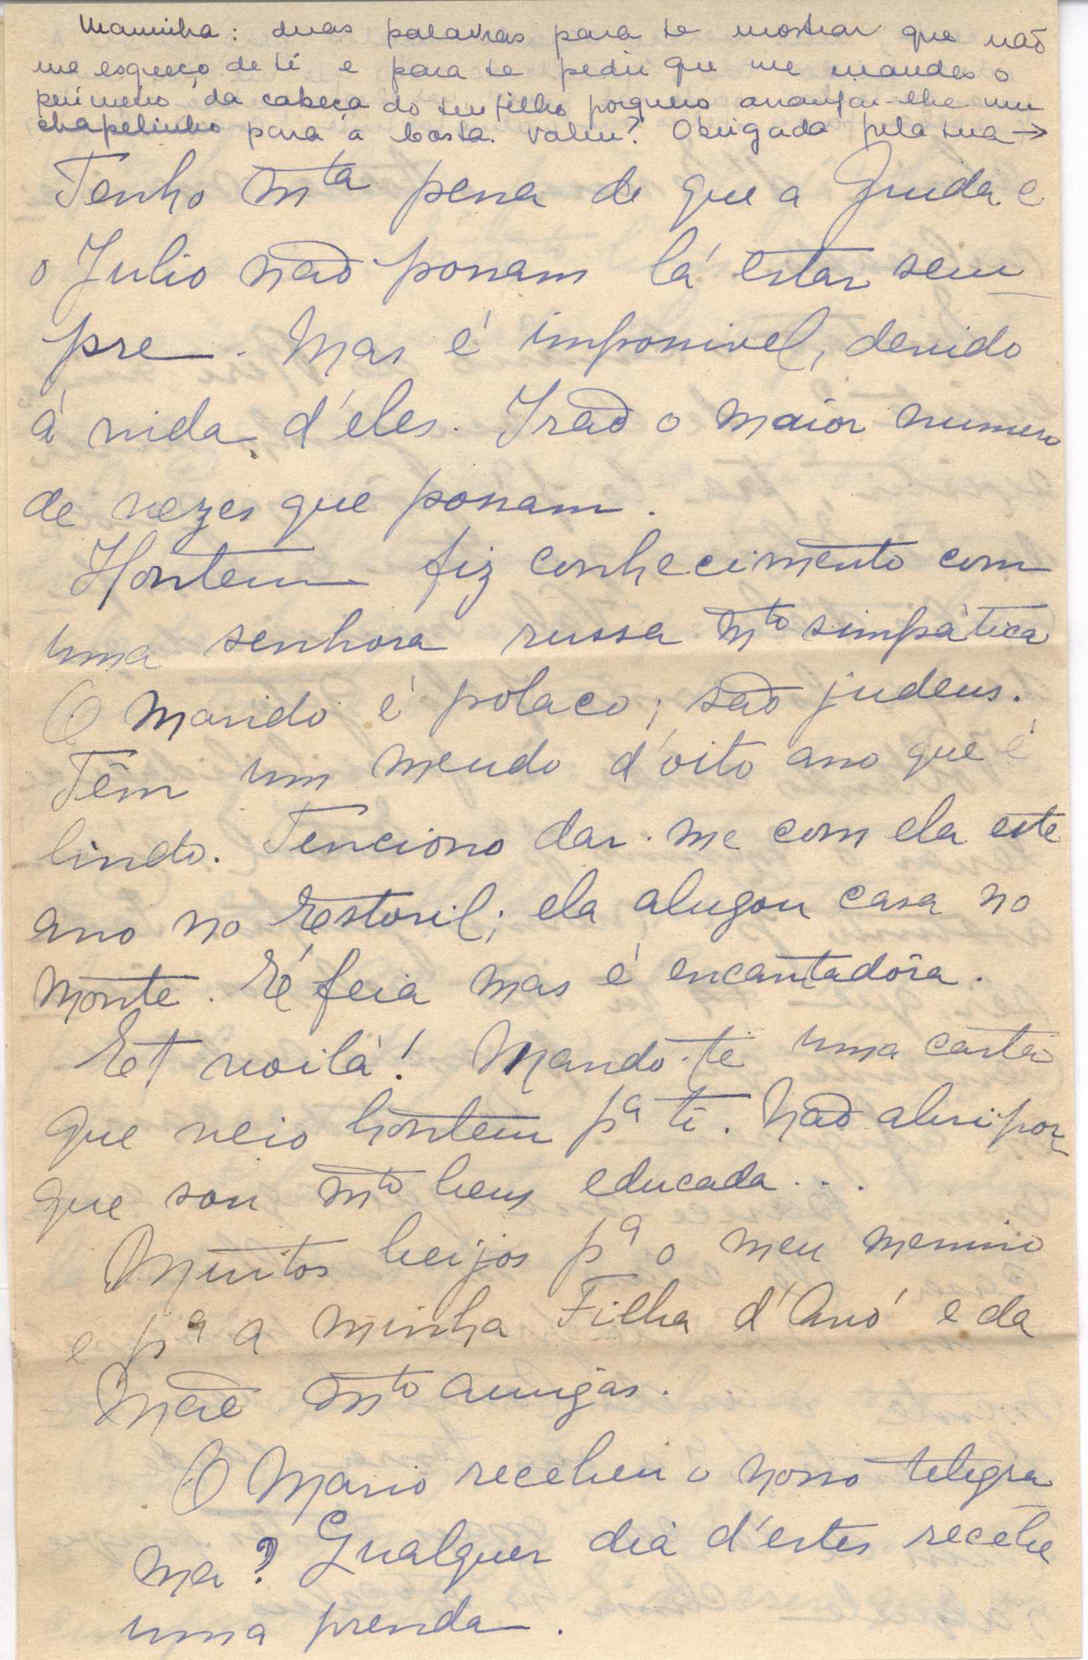 Maminha: duas palavras para te mostrar que não
me esqueço de ti e para te pedir que me mandes o
perimetro da cabeça do teu filho porquero arranjar-lhe um
chapelinho para a bosta. Valeu? Obrigada pela tua →
Tenho mta pena de que a Guida e
o Julio não possam lá estar sem
pre. Mas é impossivel, devido
á vida d'eles. Irão o maior numero
de vezes que possam.
Hontem fiz conhecimento com
uma senhora russa mto simpàtica
O marido é polaco; são judeus.
Têm um meudo d'oito ano que é
lindo. Tenciono dar-me com ela este
ano no Estoril; ela alugou casa no
monte. É feia mas é encantadôra.
Et voilà! Mando-te uma carta
que veio hontem pa ti. Não abri por
que sou mto bem educada...
Muitos beijos pa o meu menino
e pa a minha Filha d'Avó e da
Mãe mto amigas.
O Mario recebeu o nosso telegra
ma? Qualquer dia d'estes recebe
uma prenda.